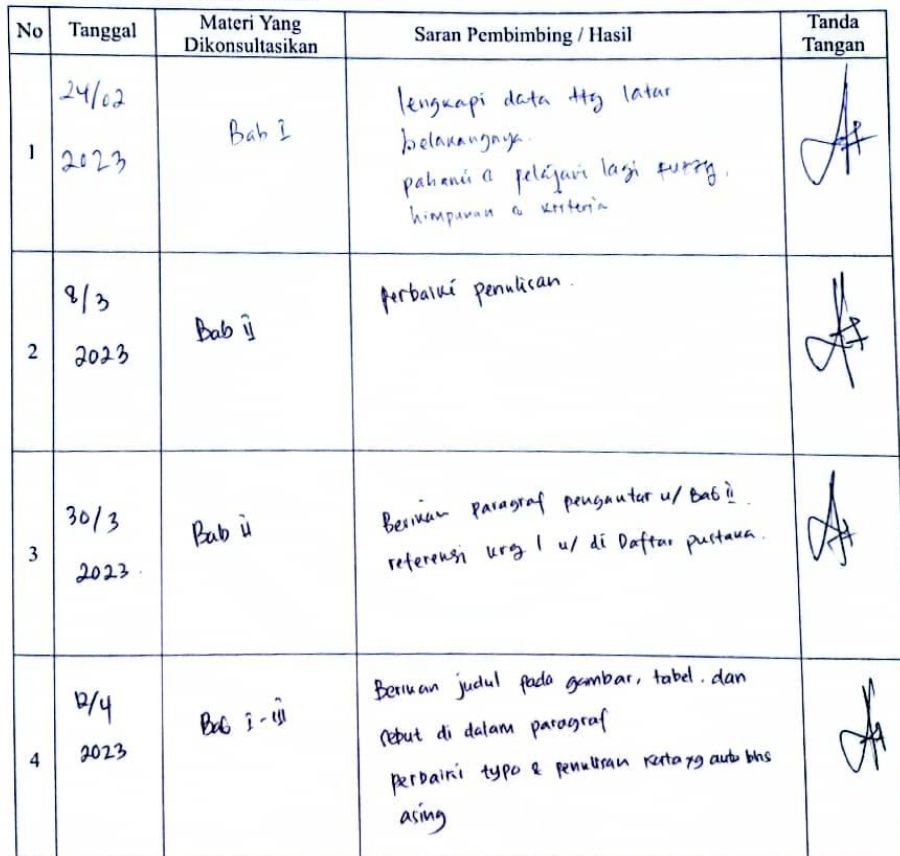 No Tanggal Materi Yang Dikonsultasikan Saran Pembimbing / Hasil Tanda Tangan
1
24/02
2023
Bab I
lengkapi data ttg latar
belakangnya.
pahami & pelajari lagi fuzzy,
himpunan & kriteria
2
8/3
2023
Bab ii
perbaiki penulisan.
3
30/3
2023.
Bab ii
Berikan paragraf pengantar u/ Bab ii.
referensi krg 1 u/ di Daftar pustaka.
4
12/4
2023
Bab i - iii
Berikan judul pada gambar, tabel. dan
sebut di dalam paragraf
perbaiki typo & penulisan serta yg bhs
asing